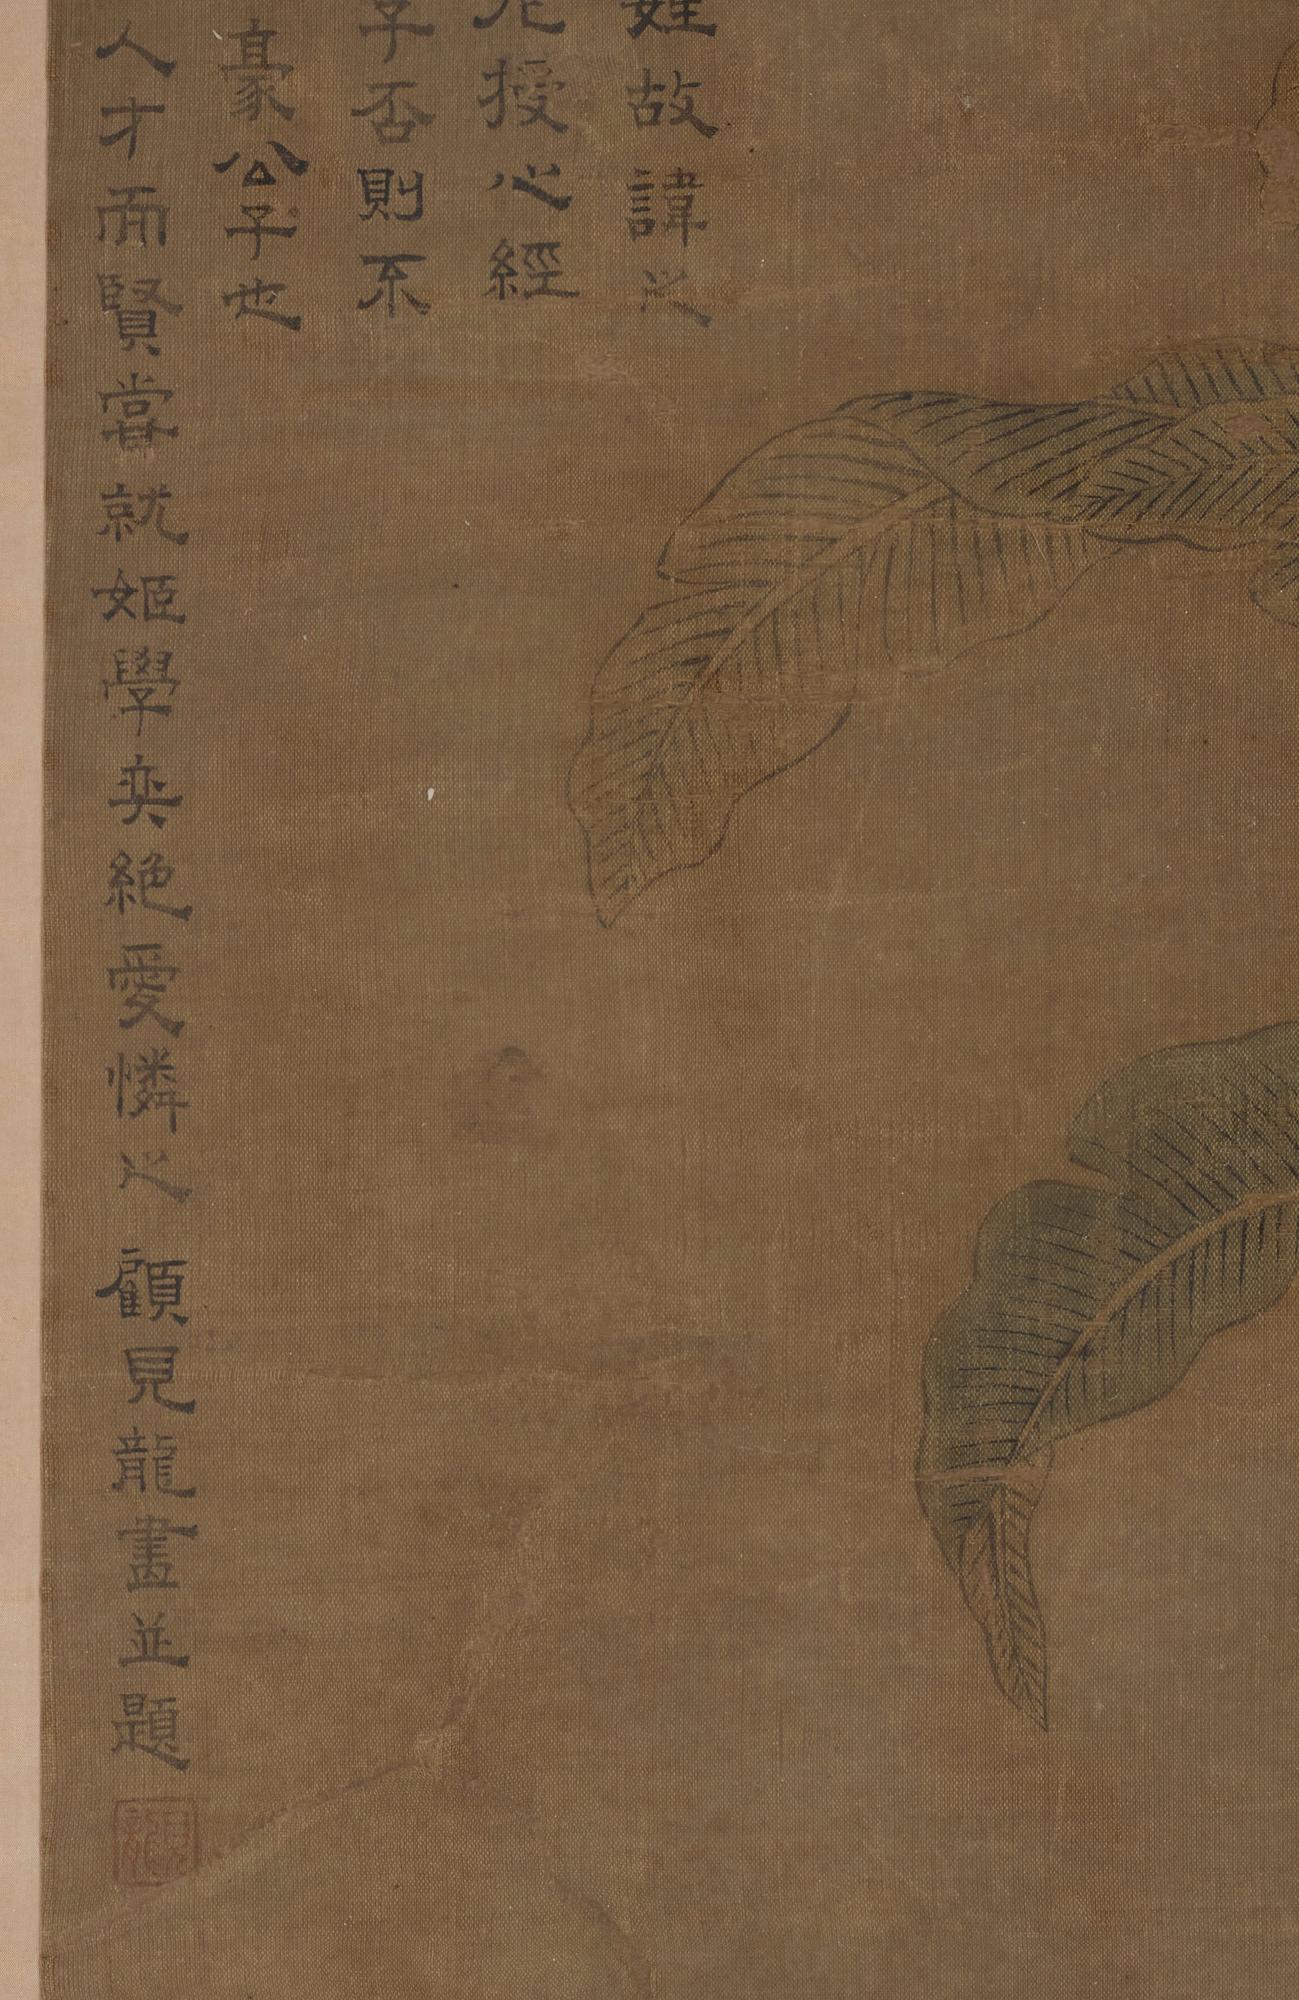 姓故諱之
授心經
字否則不
豪公子也
人才而賢嘗就姬學奕絕愛憐之 顧見龍畫並題
見龍